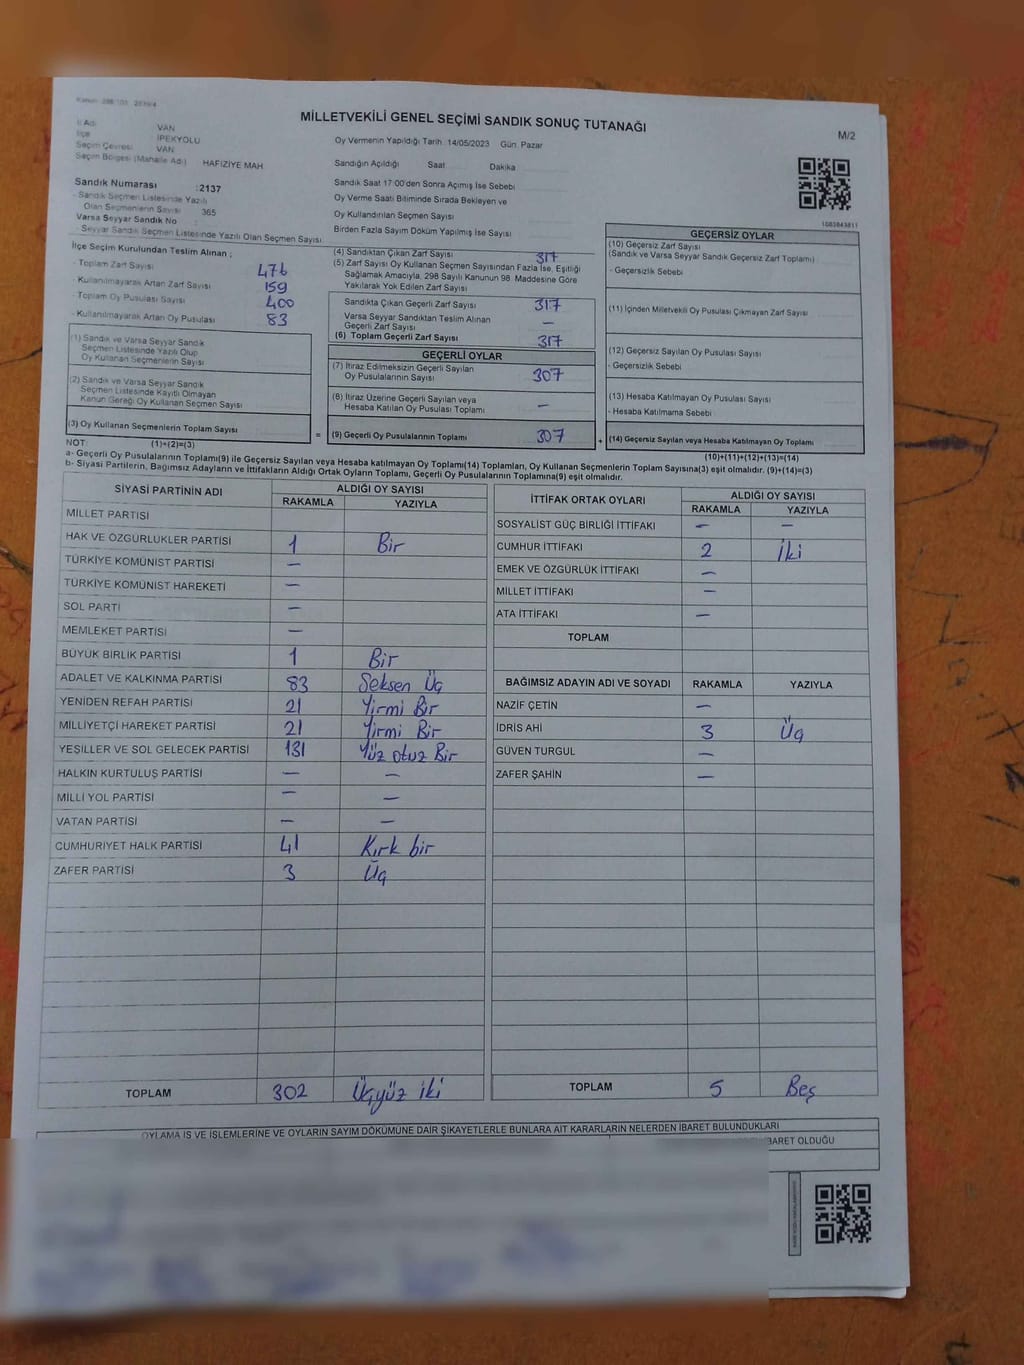 Kanun: 298/103
MİLLETVEKİLİ GENEL SEÇİMİ SANDIK SONUÇ TUTANAĞI
M/2
İl Adı VAN
İlçe İPEKYOLU
Seçim Çevresi VAN
Seçim Bölgesi (Mahalle Adı) HAFIZIYE MAH
Oy Vermenin Yapıldığı Tarih 14/05/2023 Gün: Pazar
Sandığın Açıldığı Saat Dakika
Sandık Saat 17:00'den Sonra Açımış İse Sebebi
Oy Verme Saati Bitiminde Sırada Bekleyen ve
Oy Kullandırılan Seçmen Sayısı
Birden Fazla Sayım Döküm Yapılmış İse Sayısı
Sandık Numarası :2137
- Sandık Seçmen Listesinde Yazılı
Olan Seçmenlerin Sayısı 365
Varsa Seyyar Sandık No :
- Seyyar Sandık Seçmen Listesinde Yazılı Olan Seçmen Sayısı:
1083843811
İlçe Seçim Kurulundan Teslim Alınan ;
- Toplam Zarf Sayısı 476
- Kullanılmayarak Artan Zarf Sayısı 159
- Toplam Oy Pusulası Sayısı 400
- Kullanılmayarak Artan Oy Pusulası 83
(1) Sandık ve Varsa Seyyar Sandık
Seçmen Listesinde Yazılı Olup
Oy Kullanan Seçmenlerin Sayısı
(2) Sandık ve Varsa Seyyar Sandık
Seçmen Listesinde Kayıtlı Olmayan
Kanun Gereği Oy Kullanan Seçmen Sayısı
(3) Oy Kullanan Seçmenlerin Toplam Sayısı
(4) Sandıktan Çıkan Zarf Sayısı 317
(5) Zarf Sayısı Oy Kullanan Seçmen Sayısından Fazla İse, Eşitliği
Sağlamak Amacıyla, 298 Sayılı Kanunun 98. Maddesine Göre
Yakılarak Yok Edilen Zarf Sayısı
Sandıkta Çıkan Geçerli Zarf Sayısı 317
Varsa Seyyar Sandıktan Teslim Alınan
Geçerli Zarf Sayısı —
(6) Toplam Geçerli Zarf Sayısı 317
GEÇERLİ OYLAR
(7) İtiraz Edilmeksizin Geçerli Sayılan
Oy Pusulalarının Sayısı 307
(8) İtiraz Üzerine Geçerli Sayılan veya
Hesaba Katılan Oy Pusulası Toplamı —
= (9) Geçerli Oy Pusulalarının Toplamı 307 +
GEÇERSİZ OYLAR
(10) Geçersiz Zarf Sayısı
(Sandık ve Varsa Seyyar Sandık Geçersiz Zarf Toplamı)
- Geçersizlik Sebebi
(11) İçinden Milletvekili Oy Pusulası Çıkmayan Zarf Sayısı
(12) Geçersiz Sayılan Oy Pusulası Sayısı
- Geçersizlik Sebebi
(13) Hesaba Katılmayan Oy Pusulası Sayısı
- Hesaba Katılmama Sebebi
(14) Geçersiz Sayılan veya Hesaba Katılmayan Oy Toplamı
NOT: (1)+(2)=(3) (10)+(11)+(12)+(13)=(14)
a- Geçerli Oy Pusulalarının Toplamı(9) ile Geçersiz Sayılan veya Hesaba katılmayan Oy Toplamı(14) Toplamları, Oy Kullanan Seçmenlerin Toplam Sayısına(3) eşit olmalıdır. (9)+(14)=(3)
b- Siyasi Partilerin, Bağımsız Adayların ve İttifakların Aldığı Ortak Oyların Toplamı, Geçerli Oy Pusulalarının Toplamına(9) eşit olmalıdır.
SİYASİ PARTİNİN ADI ALDIĞI OY SAYISI
RAKAMLA YAZIYLA
MİLLET PARTİSİ
HAK VE ÖZGÜRLÜKLER PARTİSİ 1 Bir
TÜRKİYE KOMÜNİST PARTİSİ —
TÜRKİYE KOMÜNİST HAREKETİ —
SOL PARTİ —
MEMLEKET PARTİSİ —
BÜYÜK BİRLİK PARTİSİ 1 Bir
ADALET VE KALKINMA PARTİSİ 83 Seksen Üç
YENİDEN REFAH PARTİSİ 21 Yirmi Bir
MİLLİYETÇİ HAREKET PARTİSİ 21 Yirmi Bir
YEŞİLLER VE SOL GELECEK PARTİSİ 131 Yüz otuz Bir
HALKIN KURTULUŞ PARTİSİ — —
MİLLİ YOL PARTİSİ — —
VATAN PARTİSİ — —
CUMHURİYET HALK PARTİSİ 41 Kırk bir
ZAFER PARTİSİ 3 Üç
TOPLAM 302 Üçyüz iki
İTTİFAK ORTAK OYLARI ALDIĞI OY SAYISI
RAKAMLA YAZIYLA
SOSYALİST GÜÇ BİRLİĞİ İTTİFAKI — —
CUMHUR İTTİFAKI 2 İki
EMEK VE ÖZGÜRLÜK İTTİFAKI —
MİLLET İTTİFAKI —
ATA İTTİFAKI —
TOPLAM
BAĞIMSIZ ADAYIN ADI VE SOYADI RAKAMLA YAZIYLA
NAZİF ÇETİN —
İDRİS AHİ 3 Üç
GÜVEN TURGUL —
ZAFER ŞAHİN —
TOPLAM 5 Beş
OYLAMA İŞ VE İŞLEMLERİNE VE OYLARIN SAYIM DÖKÜMÜNE DAİR ŞİKAYETLERLE BUNLARA AİT KARARLARIN NELERDEN İBARET BULUNDUKLARI
İBARET OLDUĞU